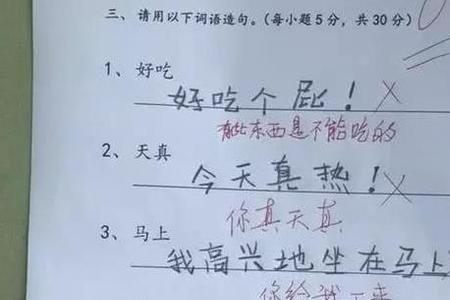 三、请用以下词语造句。(每小题5分，共30分)
1、好吃
好吃个屁！
有些东西是不能吃的
2、天真
今天真热！
你真天真
3、马上
我高兴地坐在马上
你给我下来